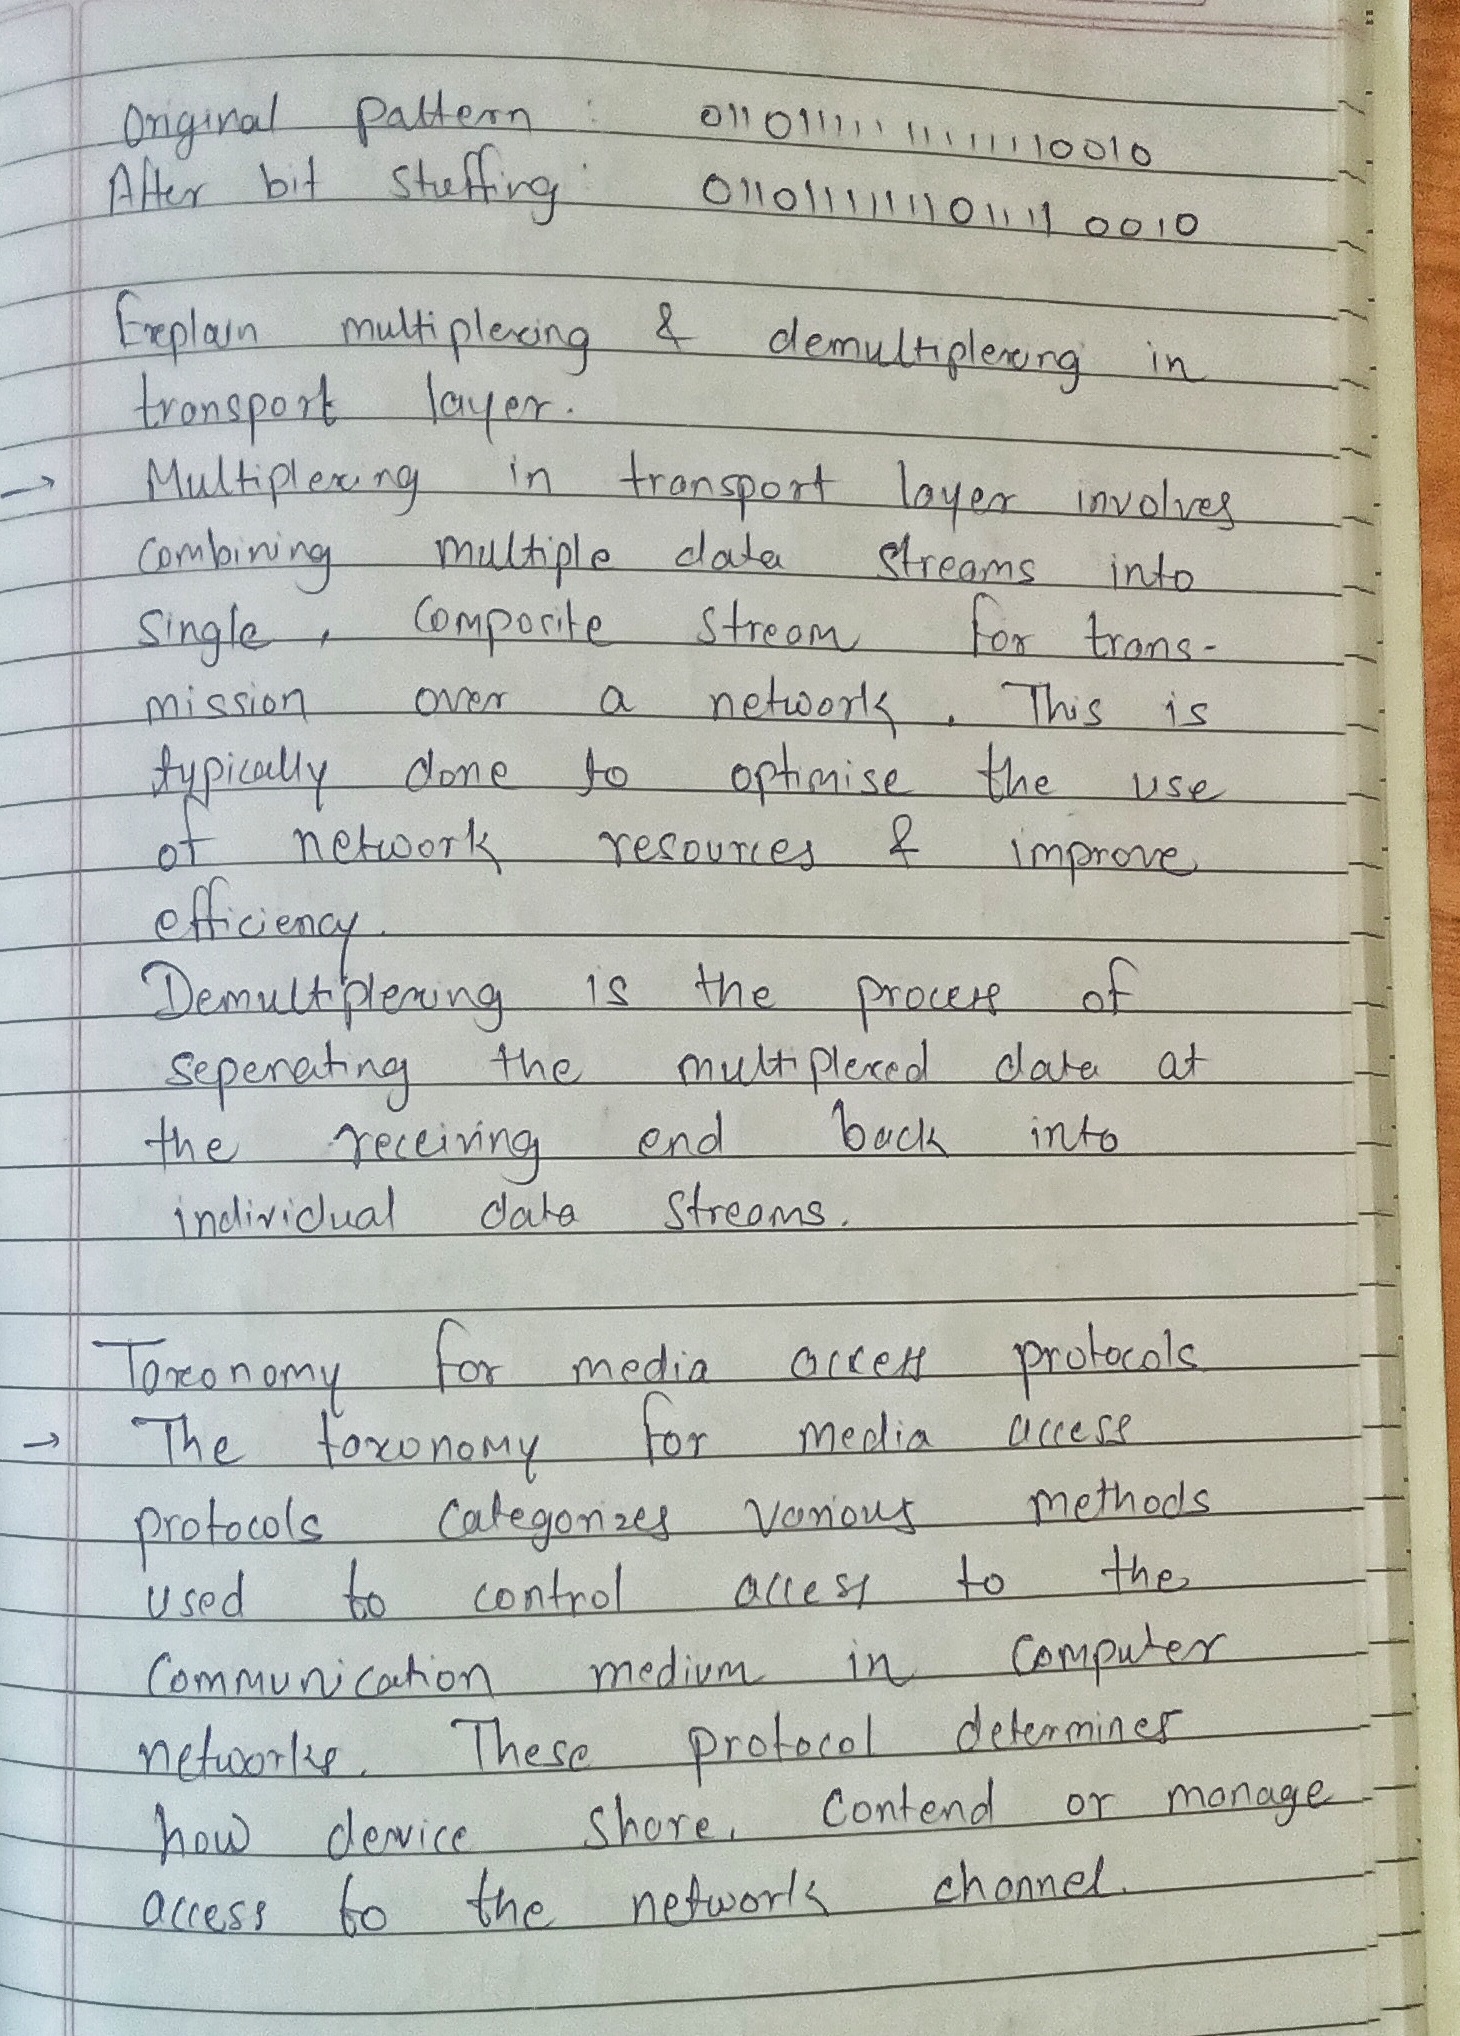 Original pattern : 011011111111111110010
After bit stuffing : 011011111111011110010
Explain multiplexing & demultiplexing in
transport layer.
→ Multiplexing in transport layer involves
combining multiple data streams into
single, composite stream for trans-
mission over a network. This is
typically done to optimise the use
of network resources & improve
efficiency.
Demultiplexing is the process of
seperating the multiplexed data at
the receiving end back into
individual data streams.
Taxonomy for media access protocols
→ The taxonomy for media access
protocols categorizes various methods
used to control access to the
communication medium in computer
networks. These protocol determines
how device share, contend or manage
access to the network channel.